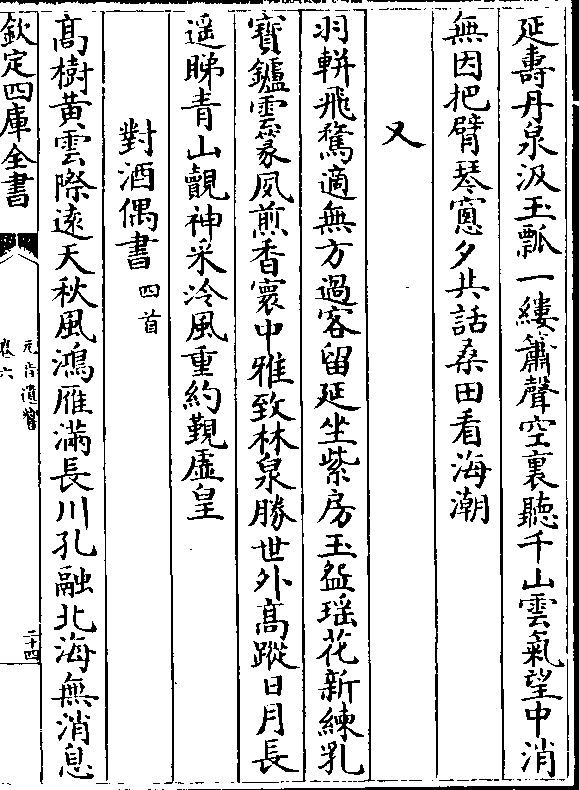 延壽丹泉汲玉瓢一縷簫聲空裏聽千山雲氣望中消
無因把臂琴窻夕共話桑田看海潮
又
羽輧飛鶩適無方過客留延坐紫房玉盆瑶花新練乳
寳鑪雲篆夙煎香寰中雅致林泉勝世外髙蹤日月長
遥睇青山覿神采冷風重約覲虚皇
對酒偶書四首
髙樹黄雲際遠天秋風鴻雁滿長川孔融北海無消息
欽定四庫全書
元音遺響
卷六
二十四